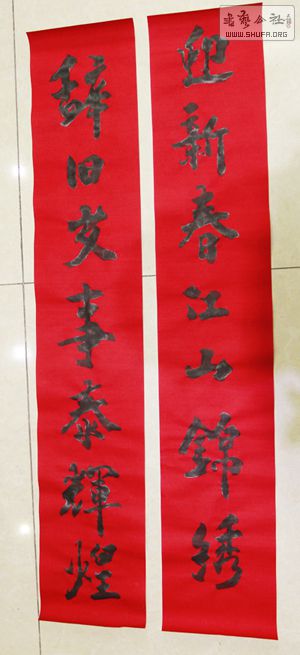 迎新春江山錦绣
辞旧岁事泰辉煌
書艺公社
WWW.SHUFA.ORG